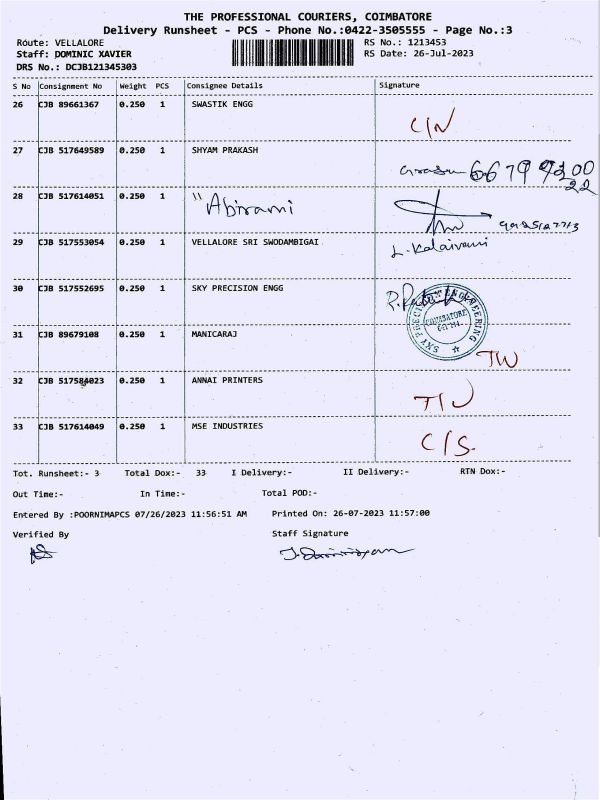 THE PROFESSIONAL COURIERS, COIMBATORE
Delivery Runsheet - PCS - Phone No.:0422-3505555 - Page No.:3
Route: VELLALORE RS No.: 1213453
Staff: DOMINIC XAVIER RS Date: 26-Jul-2023
DRS No.: DCJB121345303
S No Consignment No Weight PCS Consignee Details Signature
26 CJB 89661367 0.250 1 SWASTIK ENGG
C/N
27 CJB 517649589 0.250 1 SHYAM PRAKASH
28 CJB 517614051 0.250 1 " Abirami
29 CJB 517553054 0.250 1 VELLALORE SRI SWODAMBIGAI L. Kalaivani
30 CJB 517552695 0.250 1 SKY PRECISION ENGG
SKY PRECISION ENGINEERING
COIMBATORE
31 CJB 89679108 0.250 1 MANICARAJ
32 CJB 517584023 0.250 1 ANNAI PRINTERS
33 CJB 517614049 0.250 1 MSE INDUSTRIES
C/S.
Tot. Runsheet:- 3 Total Dox:- 33 I Delivery:- II Delivery:- RTN Dox:-
Out Time:- In Time:- Total POD:-
Entered By :POORNIMAPCS 07/26/2023 11:56:51 AM Printed On: 26-07-2023 11:57:00
Verified By Staff Signature